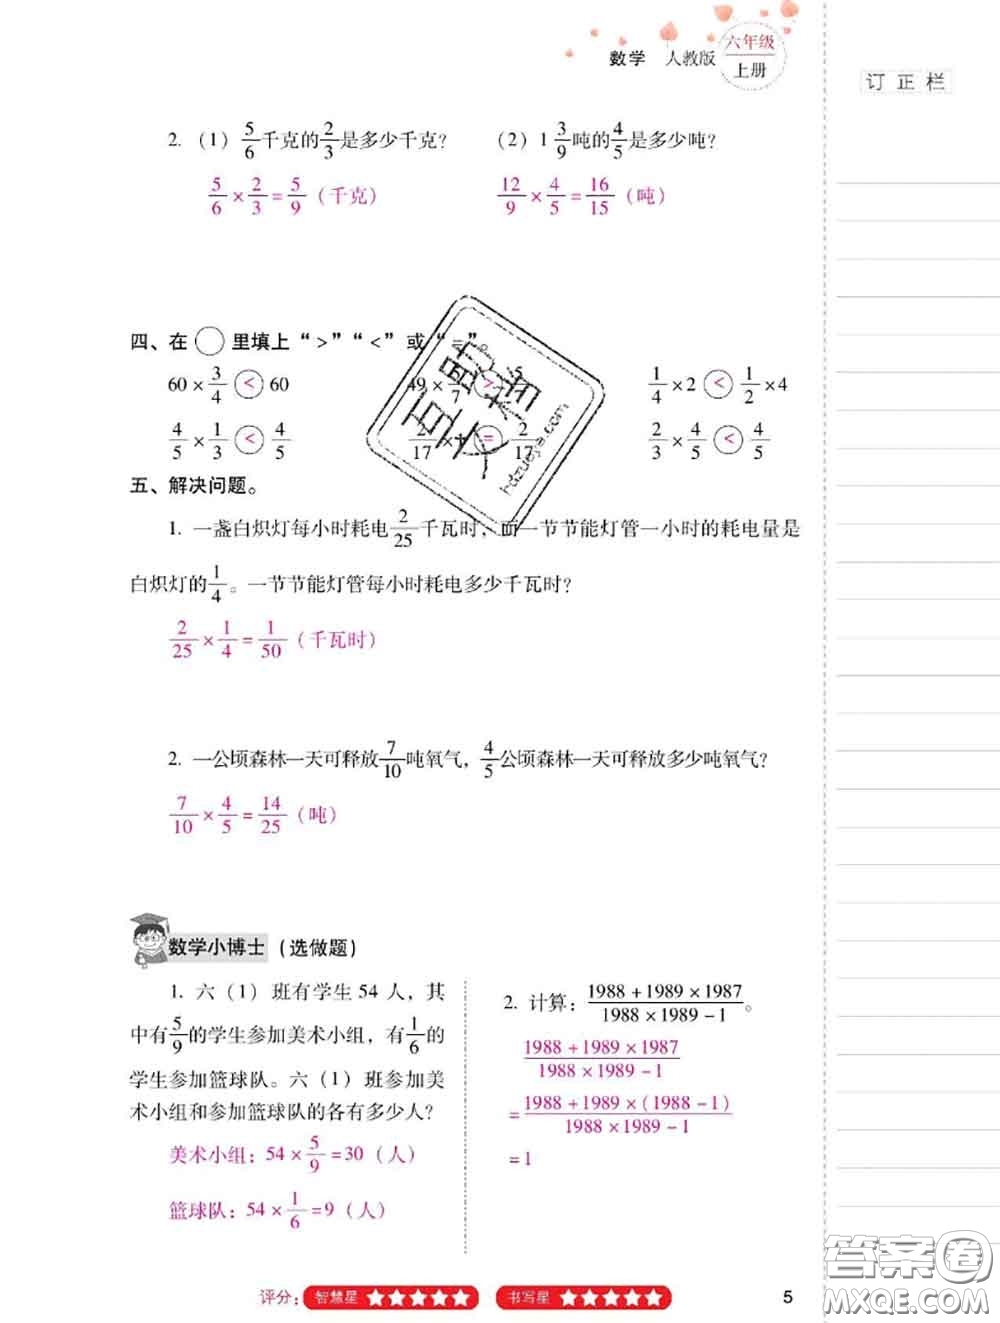 数学 人教版 六年级 上册
订正栏
2. (1) 5/6千克的2/3是多少千克? (2) 1 3/9吨的4/5是多少吨?
5/6 × 2/3 = 5/9 (千克) 12/9 × 4/5 = 16/15 (吨)
四、在 ○ 里填上“>”“<”或“=”
60 × 3/4 < 60 49 × 5/7 > 5 1/4 × 2 < 1/2 × 4
4/5 × 1/3 < 4/5 2/17 × 1 = 2/17 2/3 × 4/5 < 4/5
五、解决问题。
1. 一盏白炽灯每小时耗电2/25千瓦时,而一节节能灯管一小时的耗电量是
白炽灯的1/4。一节节能灯管每小时耗电多少千瓦时?
2/25 × 1/4 = 1/50 (千瓦时)
2. 一公顷森林一天可释放7/10吨氧气,4/5公顷森林一天可释放多少吨氧气?
7/10 × 4/5 = 14/25 (吨)
数学小博士 (选做题)
1. 六(1)班有学生54人,其
中有5/9的学生参加美术小组,有1/6的
学生参加篮球队。六(1)班参加美
术小组和参加篮球队的各有多少人?
美术小组: 54 × 5/9 = 30 (人)
篮球队: 54 × 1/6 = 9 (人)
2. 计算: (1988 + 1989 × 1987)/(1988 × 1989 − 1)。
(1988 + 1989 × 1987)/(1988 × 1989 − 1)
= (1988 + 1989 × (1988 − 1))/(1988 × 1989 − 1)
= 1
评分: 智慧星 ★★★★★ 书写星 ★★★★★
5
答案圈
MXQE.COM